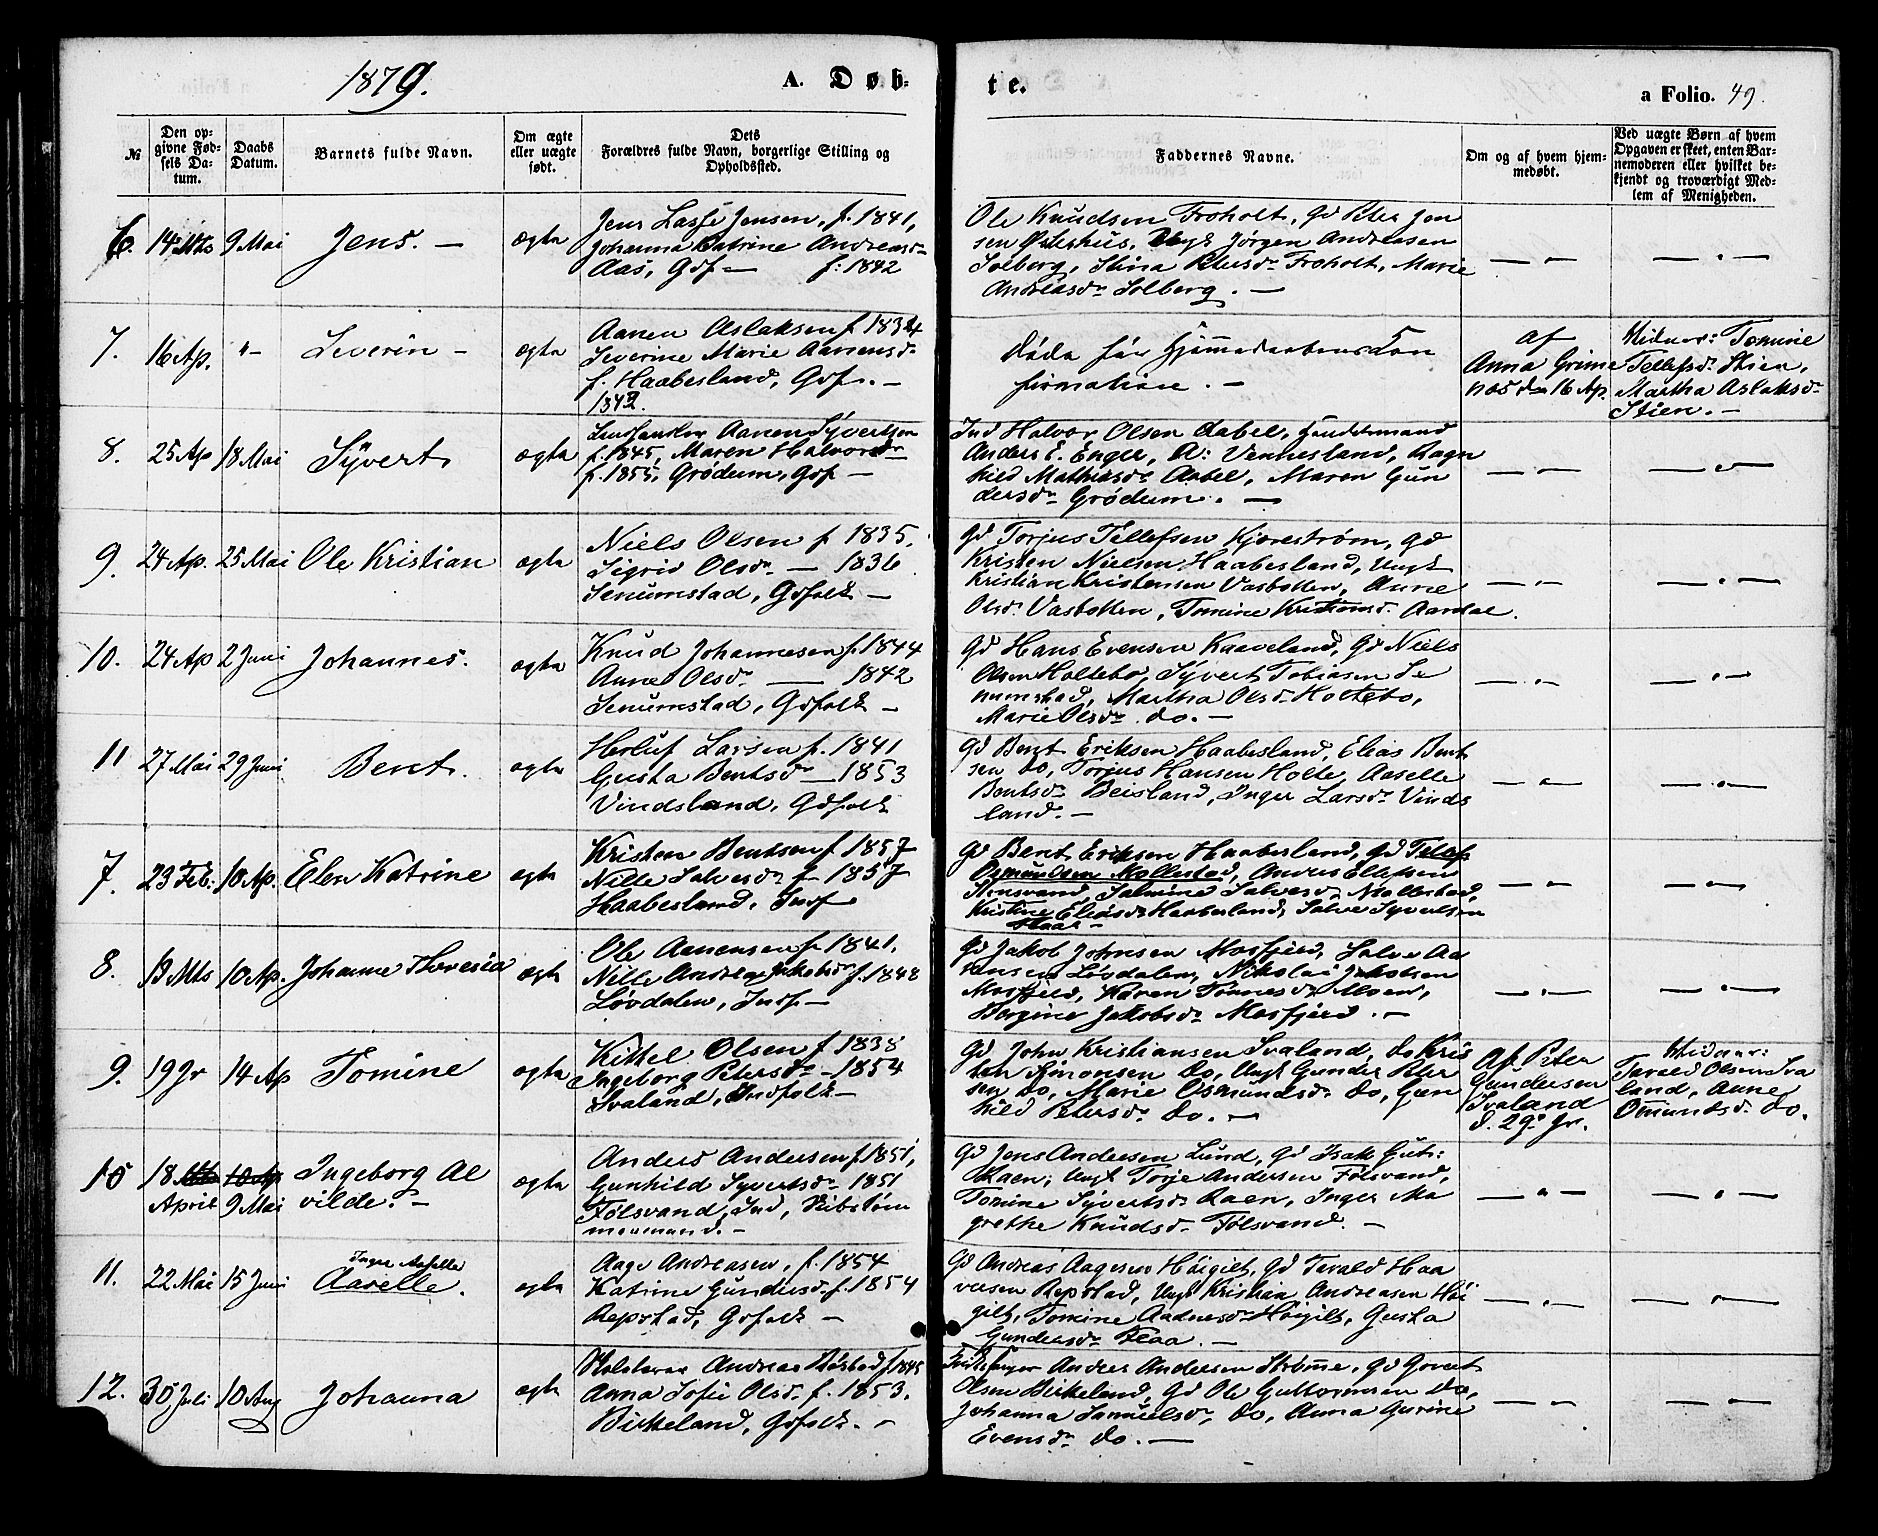 1879.
A. Døb-
te.
a Folio. 49.
№
Den op-
givne Fød-
sels Da-
tum.
Daabs
Datum.
Barnets fulde Navn.
Om ægte
eller uægte
født.
Dets
Forældres fulde Navn, borgerlige Stilling og
Opholdssted.
Faddernes Navne.
Om og af hvem hjem-
medøbt.
Ved uægte Børn af hvem
Opgaven er skeet, enten Bar-
nemoderen eller hvilket be-
kjendt og troværdigt Med-
lem af Menigheden.
6. 14 Mts 9 Mai Jens. — ægte
Jens Lasse Jensen, f. 1841,
Johanna Catrine Andreasd.
Aas, Gdf — f: 1842
Ole Knudsen Froholt, Gd Peter Jen
sen Østerhus, Ungk Jørgen Andreasen
Solberg, Stina Petersd. Froholt, Marie
Andreasd. Solberg. —
— " — — " —
7. 16 Ap. "- Severin — ægte
Aanen Aslaksen f. 1834
Severine Marie Aanensd.
f. Haabesland, Gdf. —
1842.
døde før Hjemmedaabens Con
firmation. —
af
Anna Grime
næs den 16 Ap.
Vidner: Tomine
Tellefsd. Stien,
Martha Aslaksd.
Stien. —
8. 25 Ap 18 Mai Syvert ægte
Aanen Syvertsen
f. 1845, Maren Halvorsdr
f. 1855, Grødum, Gdf —
Ind Halvor Olsen Aabel,
Anders E. Enger, A: Vennesland, Ragn
hild Mathiasd. Aabel, Maren Gun
dersd. Grødum. —
— " — — " —
9. 24 Ap. 25 Mai Ole Kristian ægte
Niels Olsen f 1835.
Sigrid Olsd. — 1836
Senumstad, Gdfolk —
Gd Torjus Tellefsen Kjørestrøm, Gd
Kristen Nielsen Haabesland, Ungk
Kristian Kristensen Vasbotten, Anne
Olsd. Vasbotten, Tomine Kristiansd. Aardal.
— " — — " —
10. 24 Ap 2 Juni Johannes. ægte
Knud Johannesen f. 1844
Anne Olsd. — 1842
Senumstad, Gdfolk —
Gd Hans Evensen Kaaveland, Gd Niels
Olsen Holtebo, Syvert Tobiasen Se
numstad, Martha Olsd. Holtebo,
Marie Olsd. do. —
— " — — " —
11 27 Mai 29 Juni Bent. ægte
Herluf Larsen f. 1841
Gusta Bentsd. — 1853
Vindsland, Gdfolk
Gd Bent Eriksen Haabesland, Elias Bent
sen do, Torjus Hansen Holte, Aaselle
Bentsd. Beisland, Inger Larsd. Vinds
land. —
— " — — " —
7. 23 Feb. 10 Ap. Elen Katrine ægte
Kristen Bentsen f 1857
Nille Salvesd. f 1857
Haabesland, Indf
Gd Bent Eriksen Haabesland, Gd Tellef
Osmundsen Mollestad, Anders Ellefsen
Stensvand, Salmine Salvesd. Mollestad,
Kristine Eliasd. Haabesland, Salve Syvertsen
— " — — " —
8. 13 Mts 10 Ap. Johanne Theresia ægte
Ole Aanensen f 1841,
Nille Andrea Jakobsdr f. 1848
Løvdalen, Indf —
Gd Jakob Johnsen Mosfjeld, Salve Aa
nensen Løvdalen, Nikolai Jakobsen
Mosfjeld, Karen Tønnesd. Moen,
Bergine Jakobsd. Mosfjeld. —
— " — — " —
9. 19 Jr 14 Ap Tomine ægte
Kittel Olsen f 1838
Ingeborg Petersd. — 1854
Svaland, Indfolk —
Gd John Kristiansen Svaland, do Kris
ten Simonsen do, Ungk Gunder Peter
sen do, Marie Osmundsd. do, Gun
hild Petersd. do. —
Af Peter
Gundersen
Svaland
d. 29. Jr.
Vidner:
Tarald Olsen Sva
land, Anne
Omundsd. do.
10 18 Mts 10 Ap Ingeborg Al ægte
April 9 Mai vilde. —
Anders Andersen f. 1851,
Gunhild Syvertsd. 1851
Følsvand, Ind,
Gd Jens Andersen Lund, Gd Isak Gut:
Raen, Ungk Torje Andersen Følsvand,
Tomine Syvertsd. Raen, Inger Ma
grethe Knudsd. Følsvand. —
— " — — " —
11. 22 Mai 15 Juni Inger Aaselle
Aaselle. ægte
Aage Andreasen, f. 1854
Katrine Gundersd. f. 1854
Repstad, Gdfolk —
Gd Andreas Aagesen Høigilt, Gd Tarald Haa
versen Repstad, Ungk Kristian Andreasen Høi
gilt, Tomine Aadnesd. Høigilt, Gusta
Gundersd. Flaa. —
— " — — " —
12. 30 Juli 10 Aug Johanna ægte
Andreas f. 1845
Anna Sofie Olsd. f. 1853.
Birkeland, Gdfolk. —
Anders Andersen Strømme, Gd Govert
Olsen Birkeland, Gd Ole Guttormsen do,
Johanna Samuelsd. do, Anna Gurine
Evensd. do. —
— " — — " —